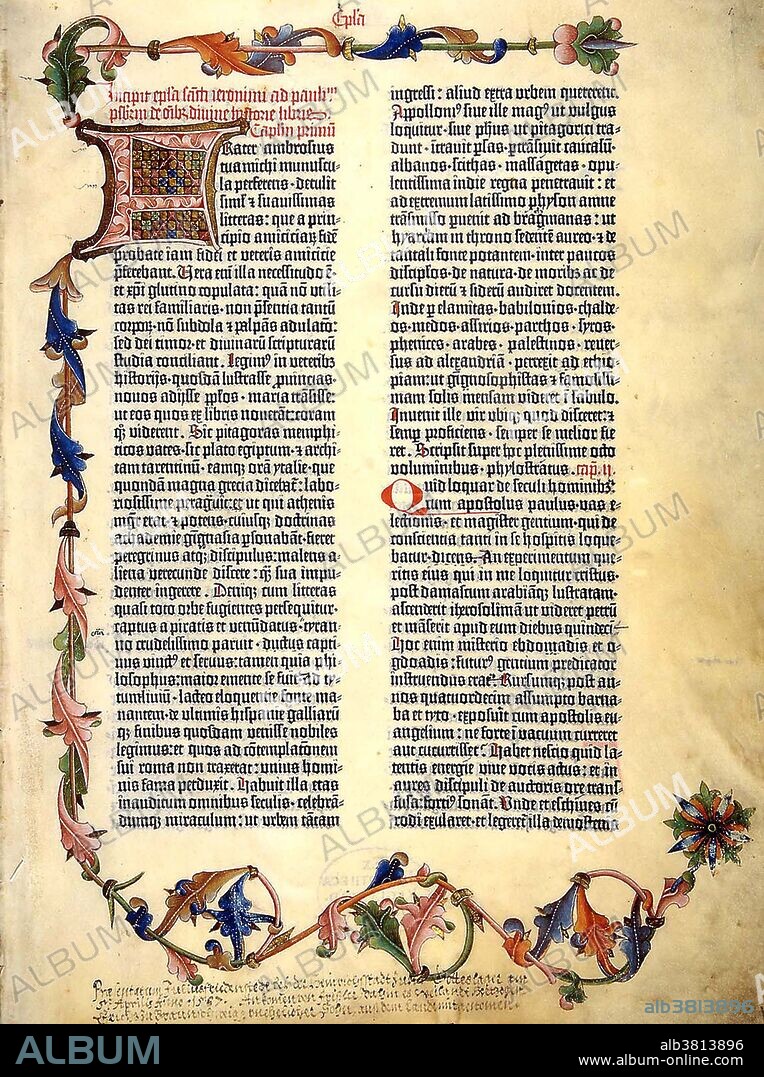 Epl̃a
Incipit epl̃a sancti ieronimi ad paulinum
presbiterum de omnibus divine hystorie libris.
Capl̃m primũ
FRater ambrosius
tua michi munuscu-
la perferens · detulit
simul et suavissimas
litteras: que a prin-
cipio amiciciarũ fidẽ
probate iam fidei et veteris amicicie
p̃ferebant. Vera enĩ illa necessitudo ẽ ·
et xp̃i glutino copulata: quam nõ utili-
tas rei familiaris · non p̃sentia tantũ
corporũ · nõ subdola et palpãs adulatio:
sed dei timor · et divinarũ scripturarũ
studia conciliant. Legimus in veteribus
historijs · quosdã lustrasse provincias ·
novos adijsse pp̃los · maria trãsisse:
ut eos quos ex libris noverãt: coram
qʒ viderent. Sic pitagoras memphi-
ticos vates · sic plato egiptum et archi-
tam tarentinũ · eamqʒ orã ytalie · que
quondã magna grecia dicebat̃: labo-
riosissime peragravit: et ut qui athenis
mgr̃ erat et potens · cuiusqʒ doctrinas
achademie gignasia p̃sonabãt · fieret
peregrinus atqʒ discipulus: malens a-
liena verecunde discere: qʒ sua impu-
denter ingerere. Deniqʒ cum litteras
quasi toto orbe fugientes persequitur ·
captus a piratis et venũdatus · tyran-
no crudelissimo paruit · ductus capti-
vus vinctus et servus: tamen quia phi-
losophus: maior emente se fuit. Ad ty-
tumliviũ · lacteo eloquentie fonte ma-
nantem · de ultimis hispanie galliarũ
qʒ finibus quosdam venisse nobiles
legimus: et quos ad cõtemplatõnem
sui roma non traxerat: unius homi-
nis fama perduxit. Habuit illa etas
inauditum omnibus seculis · celebrã-
dumqʒ miraculum: ut urbem tãtam
ingressi: aliud extra urbem quererent.
Apollonius sive ille magus ut vulgus
loquitur · sive phũs ut pitagorici tra-
dunt · ĩtravit p̃sas · p̃trãsivit caucasũ ·
albanos · scithas · massagetas · opu-
lentissima indie regna penetravit: et
ad extremum latissimo physon amne
trãsmisso p̃venit ad bragmanas: ut
hyarcam in throno sedentẽ aureo · et de
tantali fonte potantem · inter paucos
discip̃los · de natura · de moribus ac de
cursu dierũ et siderũ audiret docentem.
Inde p̃ elamitas · babilonios · chalde-
os · medos · assirios · parthos · syros ·
phenices · arabes · palestinos · rever-
sus ad alexandriã · perrexit ad ethio-
piam: ut gignosophistas et famosissi-
mam solis mensam videret ĩ sabulo.
Invenit ille vir ubique quod disceret: et
semp̃ proficiens · semper se melior fie-
ret. Scripsit super hoc plenissime octo
voluminibus · phylostratus. cap. II.
QUid loquar de seculi hominibus:
cum apostolus paulus · vas e-
lectionis · et magister gentium · qui de
conscientia tanti in se hospitis loque-
batur · dicens. An experimentum que-
ritis eius qui in me loquitur cristus ·
post damascum arabiãqʒ lustratam ·
ascenderit iherosolimã ut videret petrũ
et mãserit apud eum diebus quindecĩ ·
Hoc enim misterio ebdomadis et o-
gdoadis: futurus gentium predicator
instruendus erat. Rursumqʒ post an-
nos quatuordecim assumpto barna-
ba et tyto · exposuit cum apostolis eu-
angelium: ne forte ĩ vacuum curreret
aut cucurrisset. Habet nescio quid la-
tentis energie vive vocis actus: et in
aures discipuli de auctoris ore trans-
fusa: fortius sonat. Unde et eschives cũ
rodi exularet · et legeret̃ illa demostenis
ALBUM
alb3813896
ALBUM
alb3813896
www.album-online.com